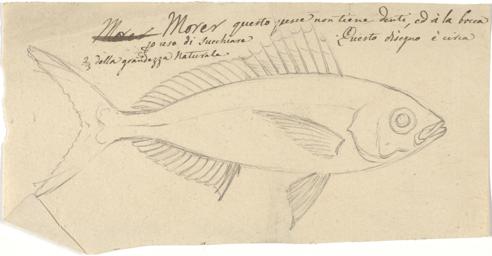 Morer Morer questo pesce non tiene denti, ed à la bocca
ad uso di succhiare Questo disegno è circa
⅔ della grandezza Naturale